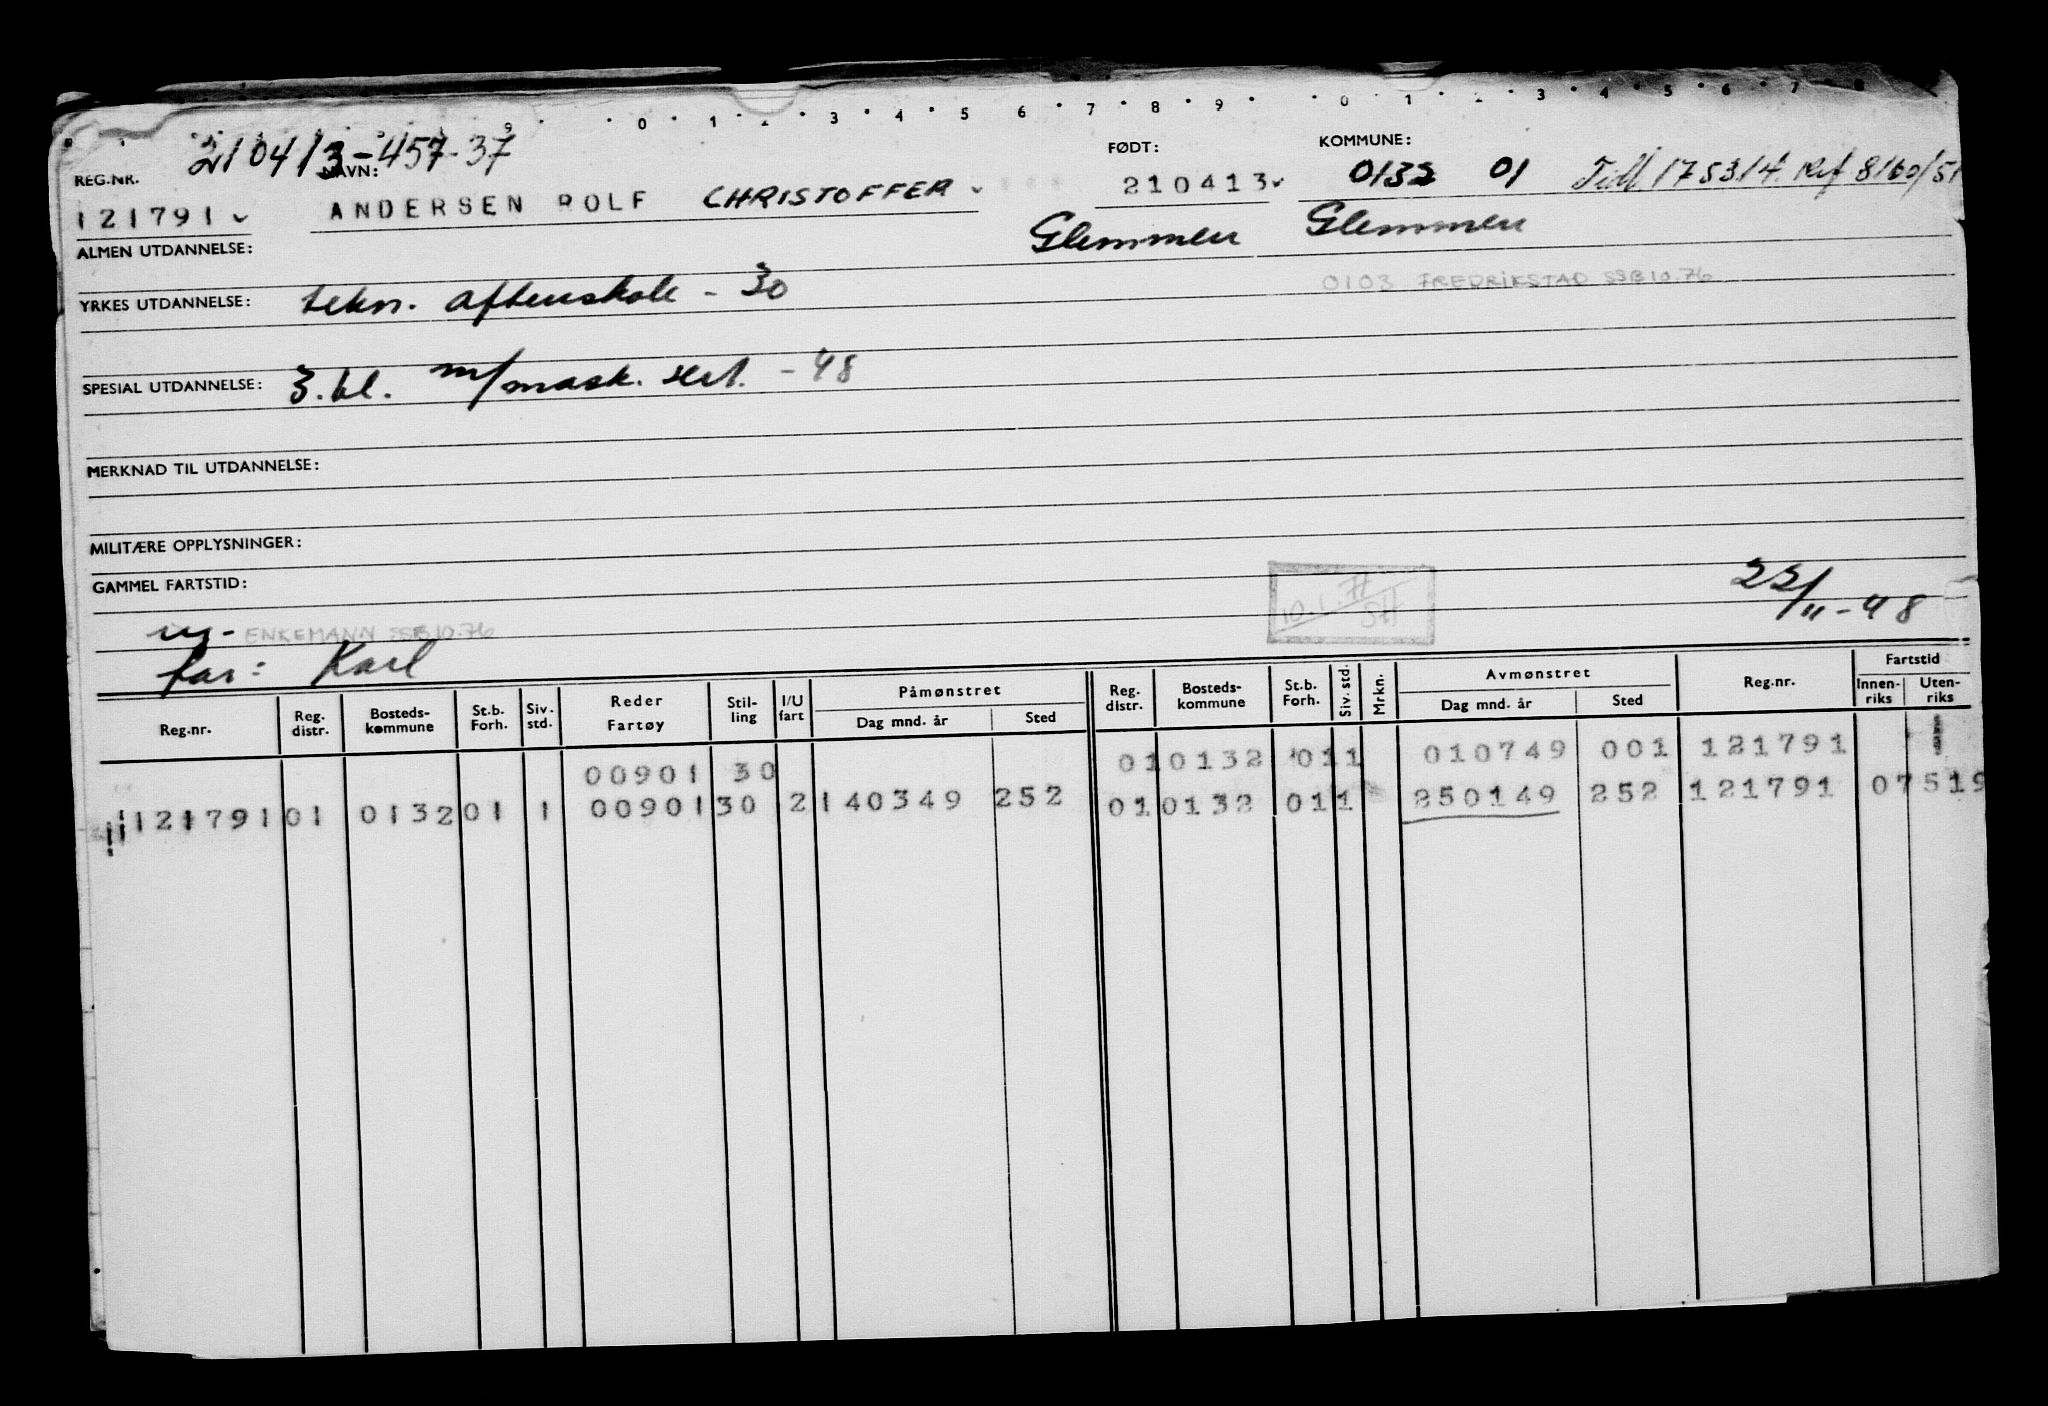 9 0 1 2 3 4 5 6 7 8 9 0 1 2 3 4 5 6 7 8
210413-457-37
REG.NR. NAVN: FØDT: KOMMUNE:
121791 ANDERSEN ROLF CHRISTOFFER 210413 0132 01 Tidl. 175314. Ref 8160/51
Glemmen Glemmen
ALMEN UTDANNELSE:
0103 FREDRIKSTAD SSB 10.76
YRKES UTDANNELSE: tekn. aftenskole - 30
SPESIAL UTDANNELSE: 3.kl. m/mask. sert. - 48
MERKNAD TIL UTDANNELSE:
MILITÆRE OPPLYSNINGER:
GAMMEL FARTSTID:
10.1.77 SH
22/11-48
ENKEMANN SSB 10.76
far: Karl
Reg.nr. Reg. distr. Bosteds-kommune St.b. Forh. Siv. std. Reder Fartøy Stil-ling I/U fart Påmønstret Dag mnd. år Sted Reg. distr. Bosteds-kommune St.b. Forh. Siv. std. Mrkn. Avmønstret Dag mnd. år Sted Reg.nr. Fartstid Innen-riks Uten-riks
00901 30 01 0132 01 1 010749 001 121791
121791 01 0132 01 1 00901 30 2 140349 252 01 0132 01 1 250149 252 121791 07519